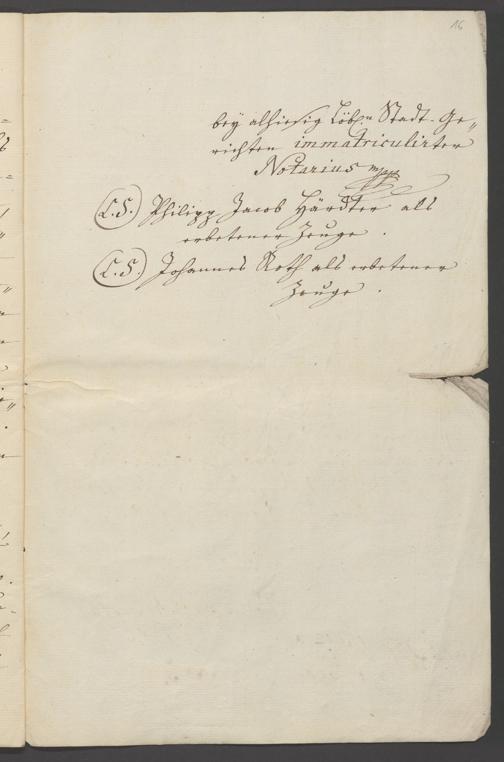 16
bey alhiesig Löbl.n Stadt-Ge„
richten immatriculirter
Notarius mpp
(L.S.) Philipp Jacob Härdter als
erbetener Zeuge.
(L.S.) Johannes Roth als erbetener
Zeuge.